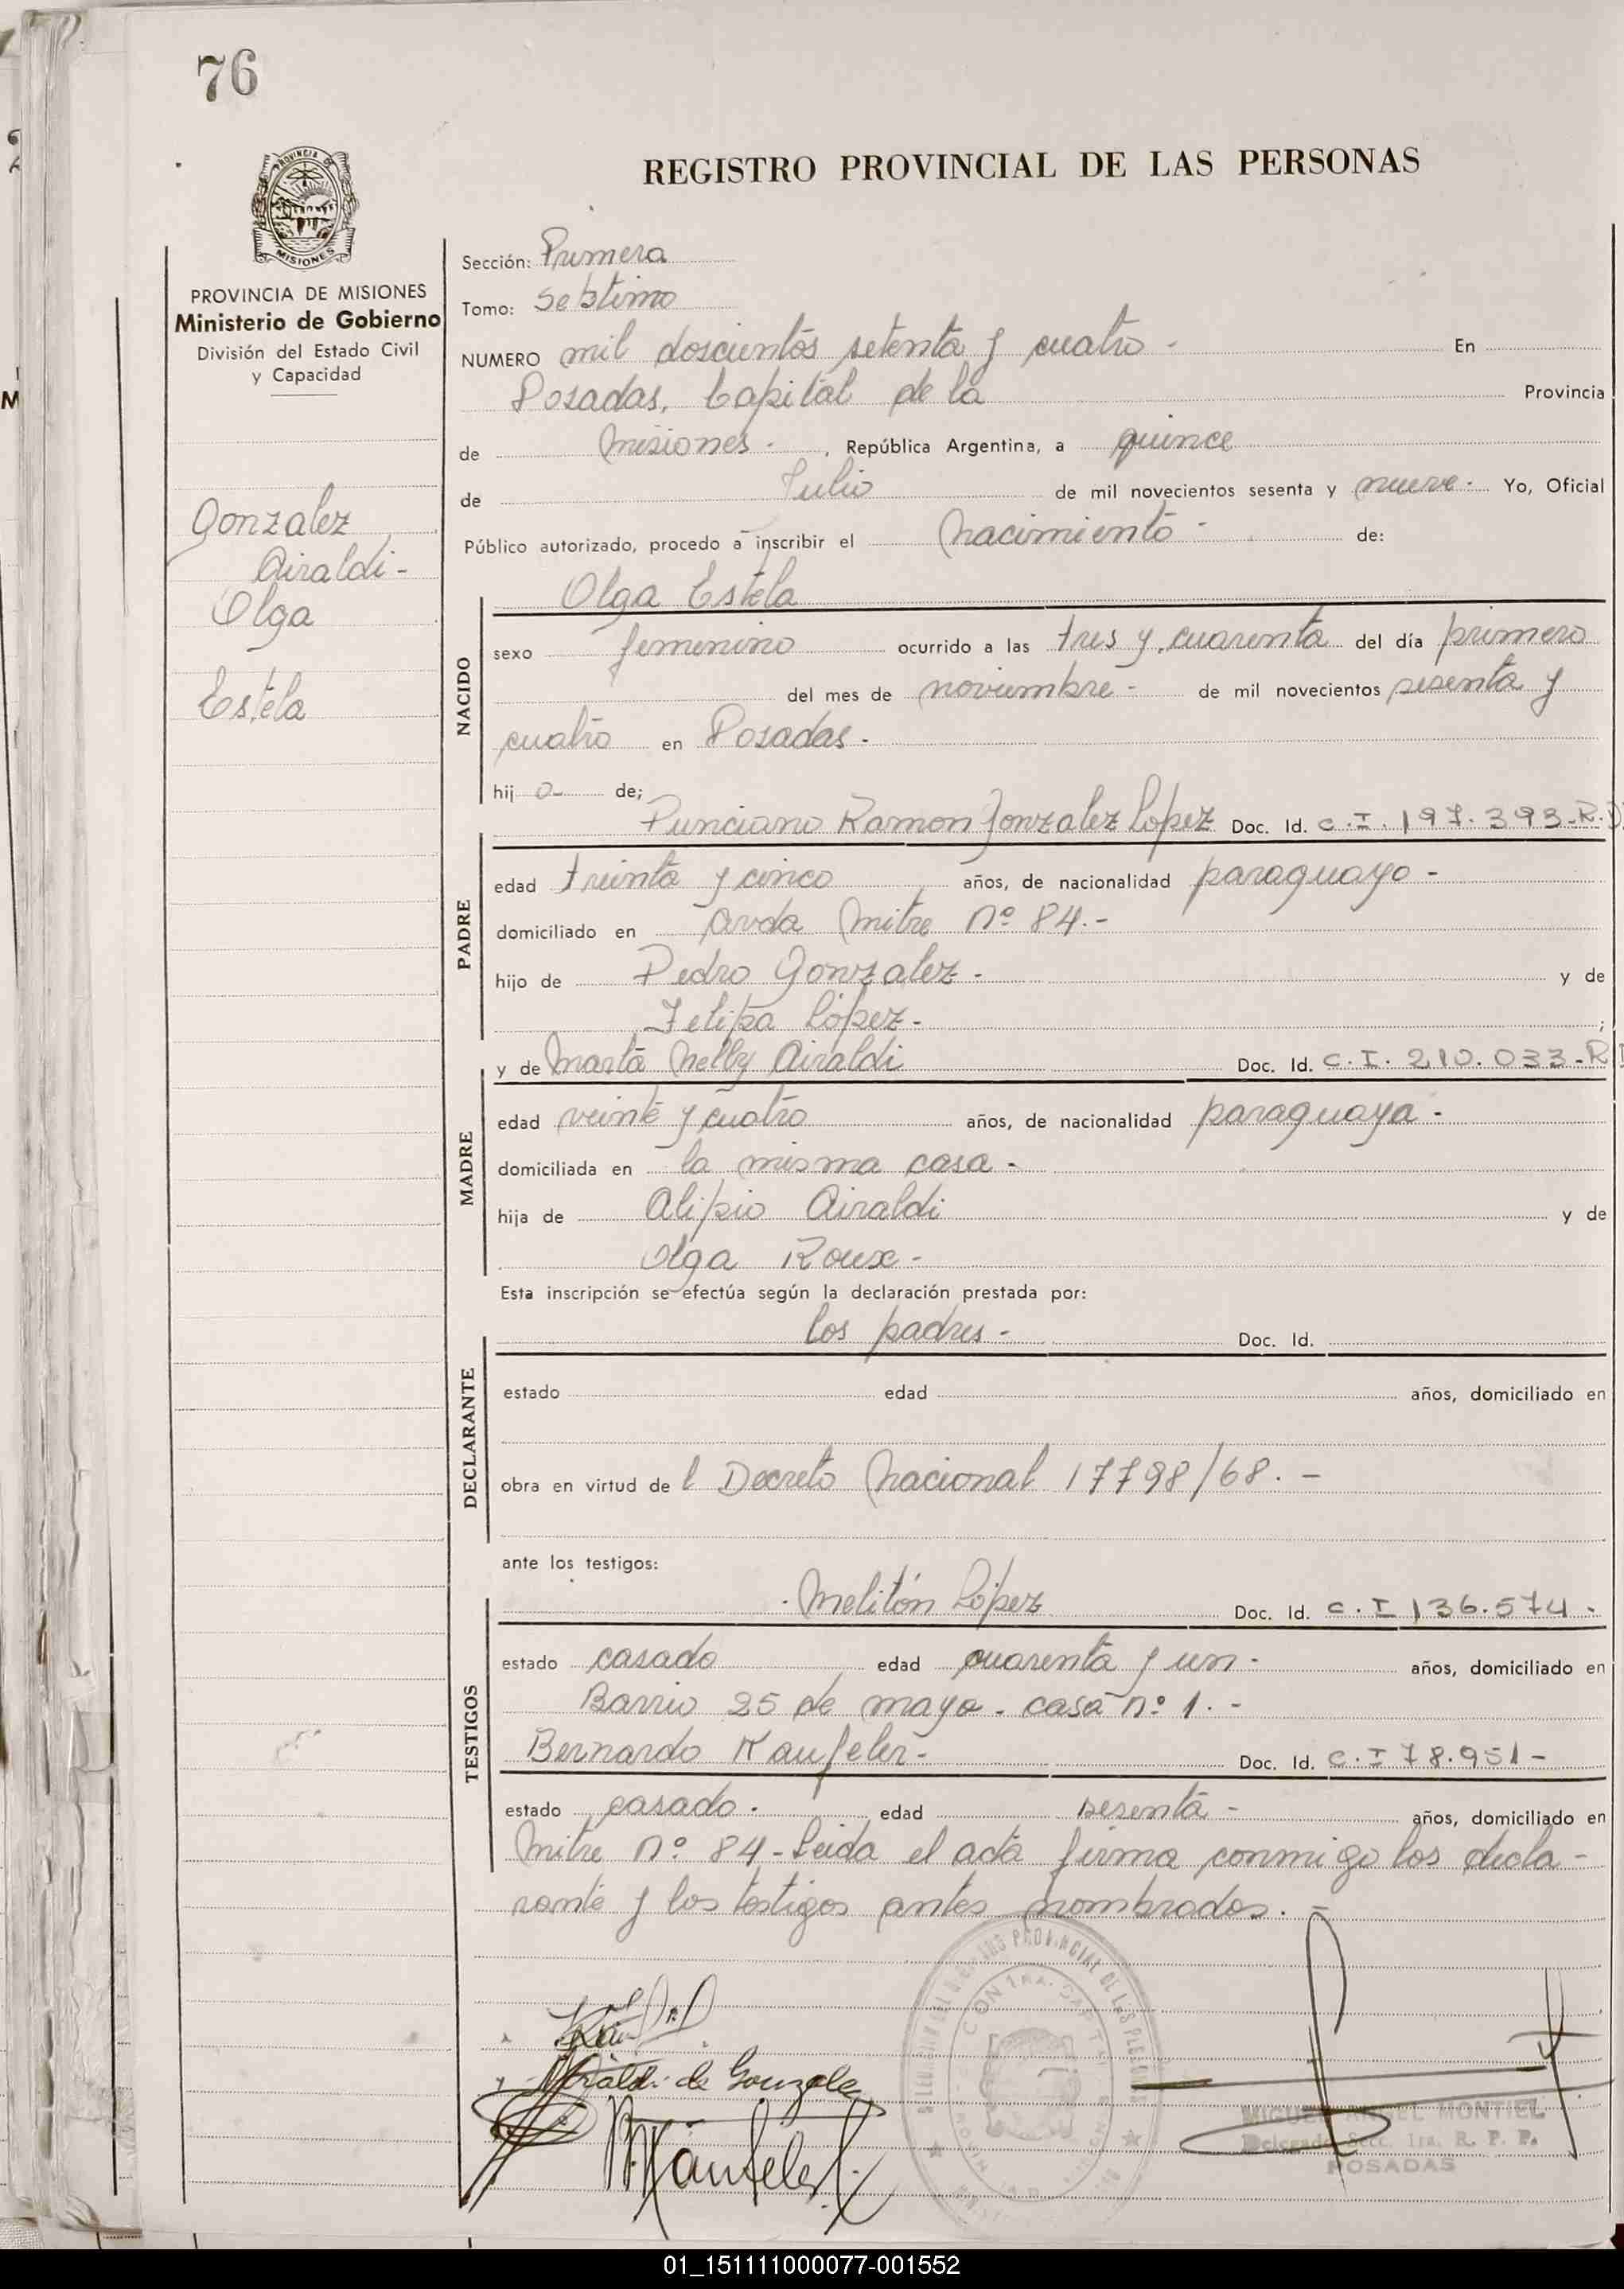 76
REGISTRO PROVINCIAL DE LAS PERSONAS
PROVINCIA DE MISIONES
PROVINCIA DE MISIONES
Ministerio de Gobierno
División del Estado Civil
y Capacidad
Gonzalez
Airaldi -
Olga
Estela
Sección: Primera
Tomo: Septimo
NUMERO mil doscientos setenta y cuatro - En
Posadas, Capital de la Provincia
de Misiones - , República Argentina, a quince
de Julio de mil novecientos sesenta y nueve - Yo, Oficial
Público autorizado, procedo a inscribir el Nacimiento - de:
Olga Estela
NACIDO
sexo femenino ocurrido a las tres y cuarenta del día primero
del mes de noviembre - de mil novecientos sesenta y
cuatro en Posadas -
hij a- de;
Punciano Ramon Gonzalez Lopez Doc. Id. C.I. 197.393-R.
PADRE
edad treinta y cinco años, de nacionalidad paraguayo -
domiciliado en Avda Mitre Nº 84.-
hijo de Pedro Gonzalez - y de
Felipa López - ;
y de Marta Nelly Airaldi Doc. Id. C.I. 210.033-R
MADRE
edad veinte y cuatro años, de nacionalidad paraguaya -
domiciliada en la misma casa -
hija de Alipio Airaldi y de
Olga Roux -
Esta inscripción se efectúa según la declaración prestada por:
los padres - Doc. Id.
DECLARANTE
estado edad años, domiciliado en
obra en virtud de l Decreto Nacional 17798/68. -
ante los testigos:
Melitón López Doc. Id. C.I 136.574 -
TESTIGOS
estado casado edad cuarenta y un - años, domiciliado en
Barrio 25 de mayo - casa nº 1. -
Bernardo Kaufeler - Doc. Id. C.I 78.951 -
estado casado. edad sesenta - años, domiciliado en
Mitre nº 84 - Leida el acta firma conmigo los decla -
rante y los testigos antes nombrados. -
Airaldi de Gonzalez
MIGUEL ANGEL MONTIEL
Delegado Secc. 1ra. R. P. P.
POSADAS
01_151111000077-001552